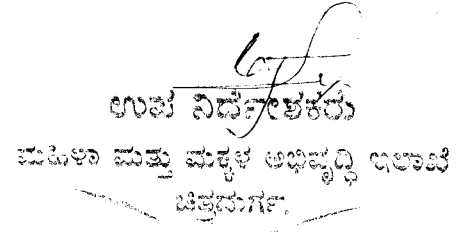 ಉಪ ನಿರ್ದೇಶಕರು
ಮಹಿಳಾ ಮತ್ತು ಮಕ್ಕಳ ಅಭಿವೃದ್ಧಿ ಇಲಾಖೆ
ಚಿತ್ರದುರ್ಗ.